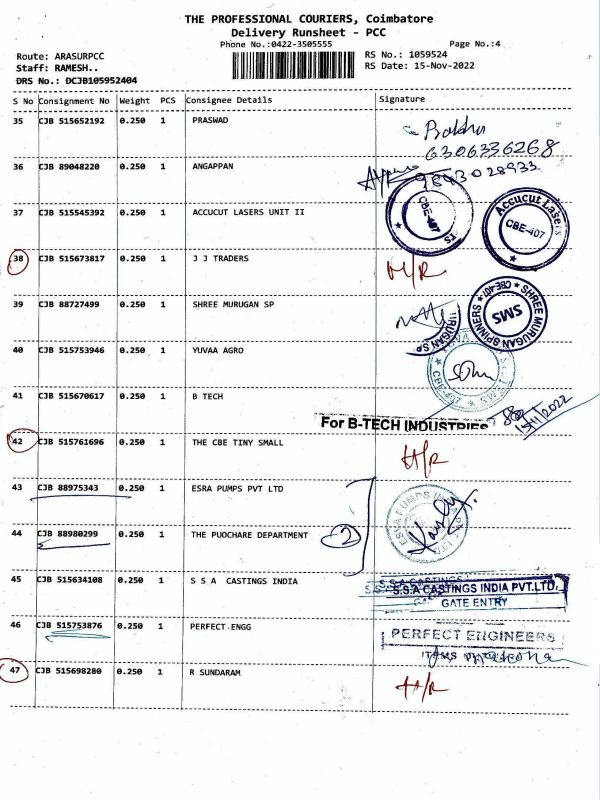 THE PROFESSIONAL COURIERS, Coimbatore
Delivery Runsheet - PCC
Phone No.:0422-3505555 Page No.:4
Route: ARASURPCC RS No.: 1059524
Staff: RAMESH.. RS Date: 15-Nov-2022
DRS No.: DCJB105952404
S No Consignment No Weight PCS Consignee Details Signature
35 CJB 515652192 0.250 1 PRASWAD
6306336268
36 CJB 89048220 0.250 1 ANGAPPAN
9843028933
37 CJB 515545392 0.250 1 ACCUCUT LASERS UNIT II
CBE-407
Accucut Lasers
CBE-407
38 CJB 515673817 0.250 1 J J TRADERS
39 CJB 88727499 0.250 1 SHREE MURUGAN SP
SHREE MURUGAN SPINNERS * CBE-407 *
SMS
40 CJB 515753946 0.250 1 YUVAA AGRO
CBE-407
41 CJB 515670617 0.250 1 B TECH
For B-TECH INDUSTRIES
15/11/2022
42 CJB 515761696 0.250 1 THE CBE TINY SMALL
H/R
43 CJB 88975343 0.250 1 ESRA PUMPS PVT LTD
44 CJB 88980299 0.250 1 THE PUOCHARE DEPARTMENT 2
45 CJB 515634108 0.250 1 S S A CASTINGS INDIA
S.S.A CASTINGS INDIA PVT.LTD.
GATE ENTRY
46 CJB 515753876 0.250 1 PERFECT ENGG
PERFECT ENGINEERS
47 CJB 515698280 0.250 1 R SUNDARAM
H/R